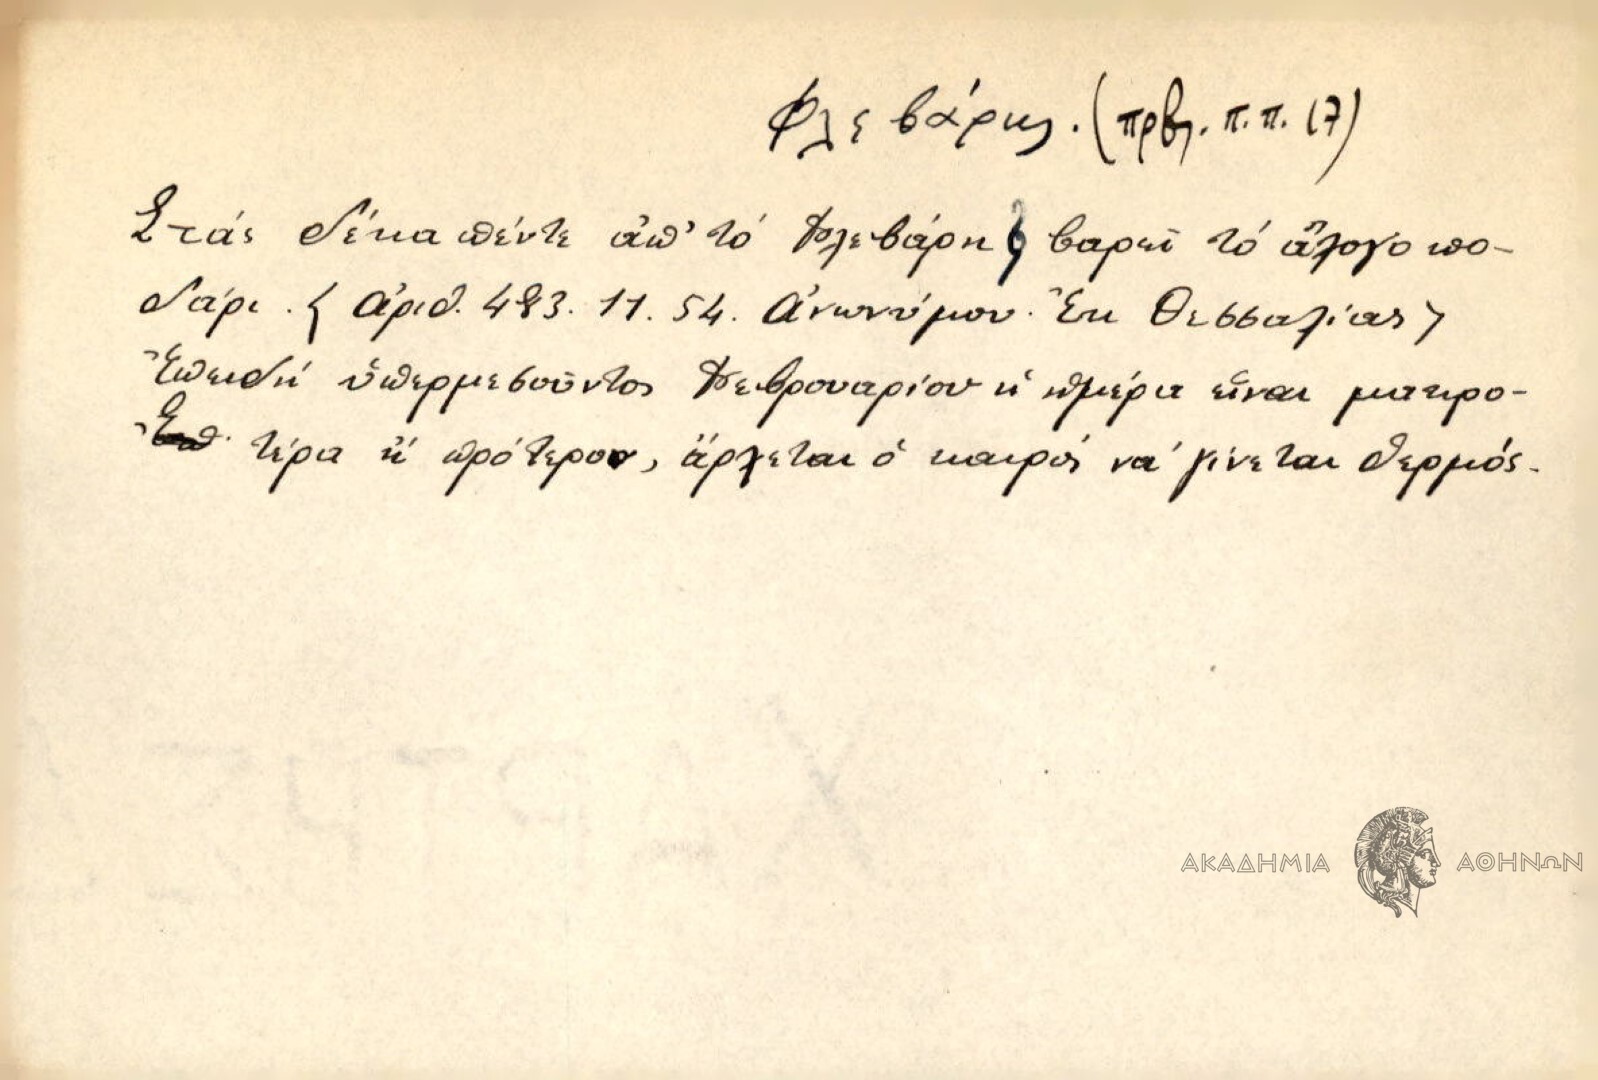 Φλεβάρης. (πρβλ. π.π. 17)
Στὰς δέκα πέντε ἀπ' τὸ Φλεβάρη βαρεῖ τὸ ἄλογο πο-
δάρι. { Ἀριθ. 483. 11. 54. Ἀνωνύμου. Ἐκ Θεσσαλίας }
Ἐπειδὴ ὑπερμεσοῦντος Φεβρουαρίου ἡ ἡμέρα εἶναι μακρο-
τέρα ἢ πρότερον, ἄρχεται ὁ καιρὸς νὰ γίνεται θερμός.
ΑΚΑΔΗΜΙΑ ΑΘΗΝΩΝ